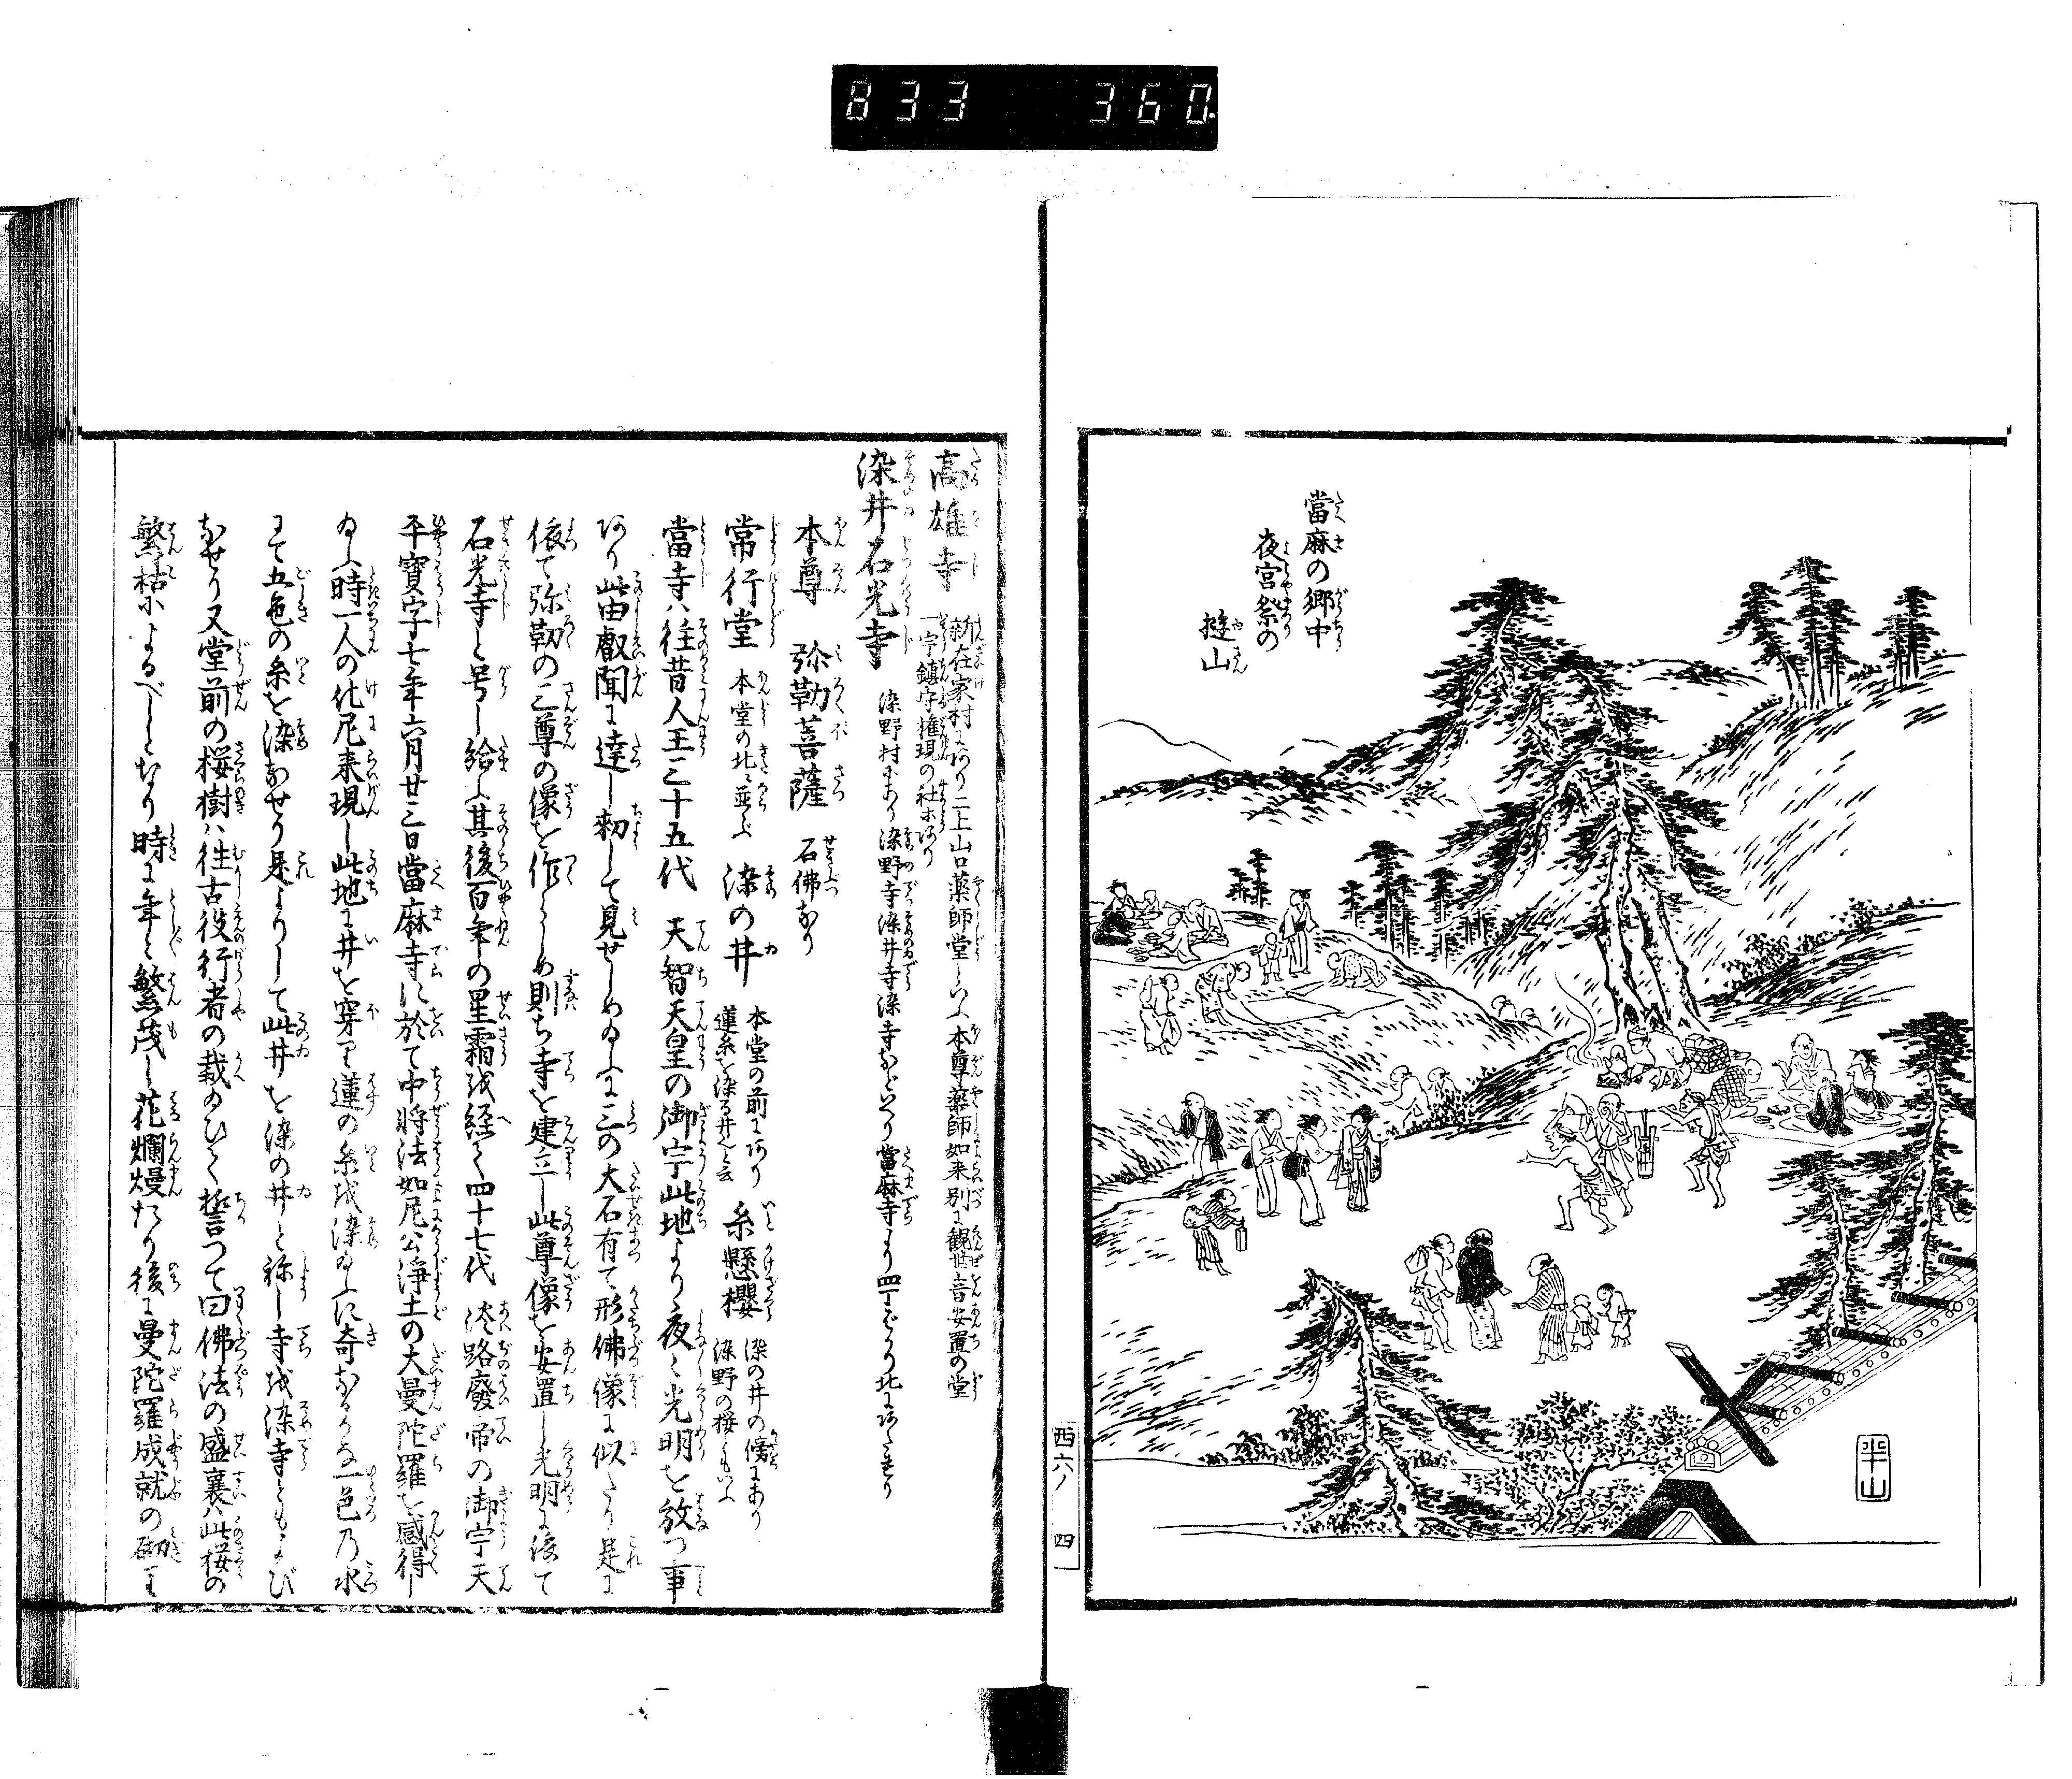 833 360
當麻の郷中
夜宮祭の
遊山
半山
西六ノ 四
高雄寺
新在家村にあり二上山口薬師堂といふ本尊薬師如来別に観世音安置の堂
一宇鎮守権現の社にあり
染井石光寺
染野村にあり染野寺染井寺染寺などいへり當麻寺より四丁ばかり北にあたれり
本尊 弥勒菩薩 石佛なり
常行堂 本堂の北に並ぶ 染の井 本堂の前にあり
蓮糸を染る井と云 糸懸櫻 染の井の傍にあり
染野の桜ともいふ
當寺ハ往昔人王三十五代 天智天皇の御宇此地より夜々光明を放つ事
あり此由叡聞に達し勅して見せしめ給ふに三の大石有て形佛像に似たり是に
依て弥勒の三尊の像を作らしめ則ち寺を建立し此尊像を安置し光明に依て
石光寺と号し給ふ其後百年の星霜を経て四十七代 淡路廢帝の御宇天
平寶字七年六月廿三日當麻寺に於て中将法如尼公浄土の大曼陀羅を感得し
給ふ時一人の化尼来現し此地に井を穿り蓮の糸を染給ふに奇なるかな一色の水
にて五色の糸を染なせり是よりして此井を染の井と称し寺を染寺ともよび
なせり又堂前の桜樹ハ往古役行者の栽給ひて誓つて曰佛法の盛衰ハ此桜の
繁枯によるべしとなり時に年々繁茂し花爛熳たり後に曼陀羅成就の砌に